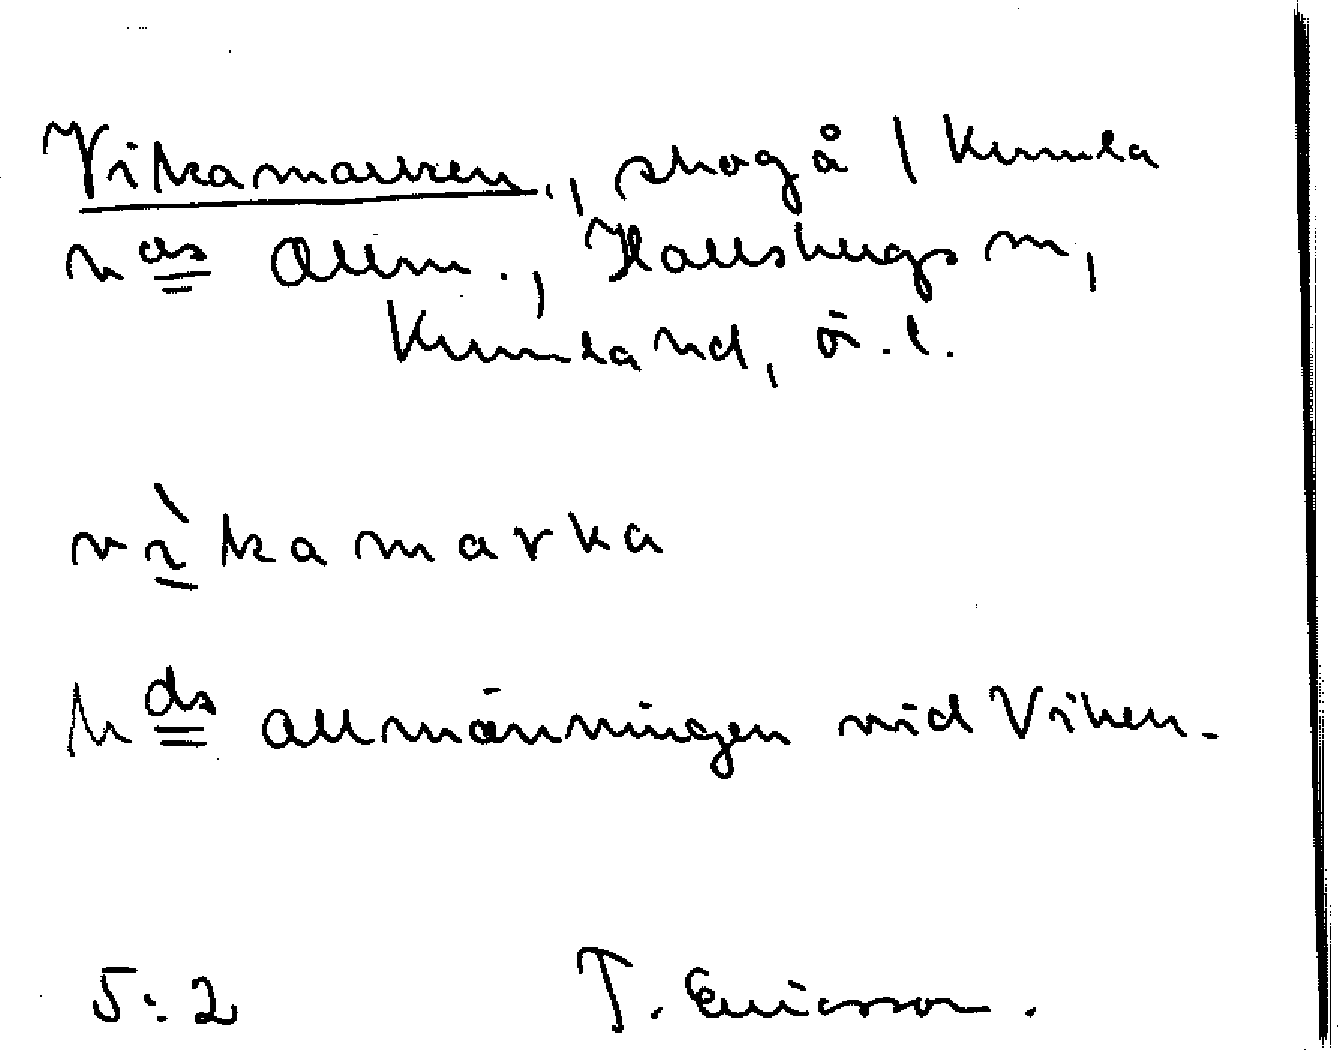 Vikamarken., skog å / Kumla
h ds Allm., Hallsbergs m,
Kumla hd, ö.l.
vìkamarka
h ds allmänningen vid Viken.
5:2 T. Ericsson.